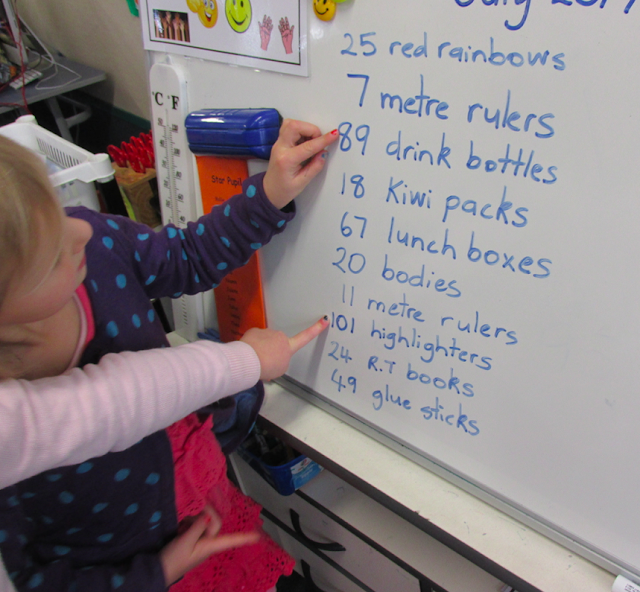 July 201
25 red rainbows
7 metre rulers
89 drink bottles
18 Kiwi packs
67 lunch boxes
20 bodies
11 metre rulers
101 highlighters
24 R.T books
49 glue sticks
°C °F
Star Pupil